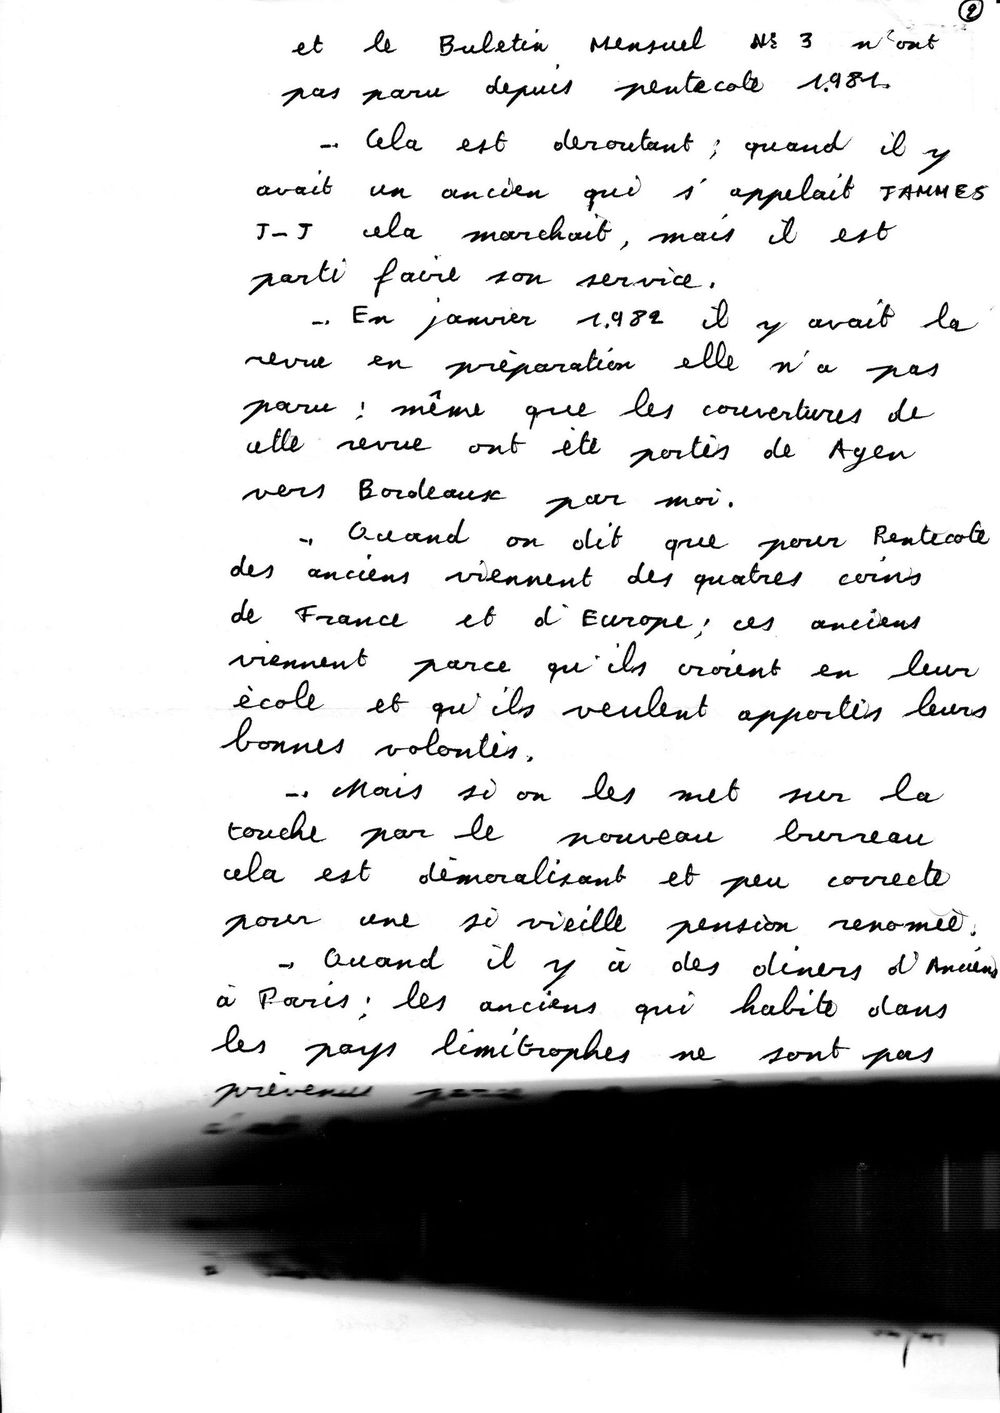 2
et le Buletin Mensuel N° 3 n'ont
pas paru depuis pentecote 1.981.
-. Cela est deroutant ; quand il y
avait un ancien qui s'appelait JAMMES
J-J cela marchait, mais il est
parti faire son service.
-. En janvier 1.982 il y avait la
revue en prèparation elle n'a pas
paru ; même que les couvertures de
cette revue ont ètè portès de Agen
vers Bordeaux par moi.
-. Quand on dit que pour Pentecote
des anciens viennent des quatres coins
de France et d'Europe ; ces anciens
viennent parce qu'ils croient en leur
ècole et qu'ils veulent apportès leurs
bonnes volontès.
-. Mais si on les met sur la
touche par le nouveau burreau
cela est dèmoralisant et peu correcte
pour une si vieille pension renomèè.
-. Quand il y à des diners d'Anciens
à Paris ; les anciens qui habite dans
les pays limitrophes ne sont pas
prèvenus parce